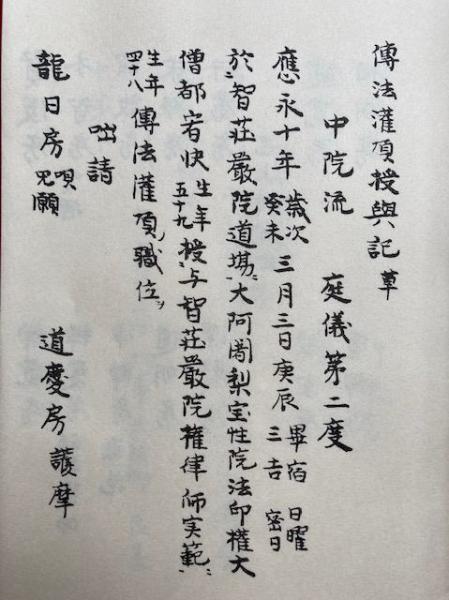 傳法灌頂授與記 草
中院流 庭儀第二度
應永十年歳次癸未三月三日庚辰畢宿日曜三吉密日
於智荘嚴院道場大阿闍梨宝性院法印權大
僧都宥快生年五十九授与智荘嚴院權律師実範
生年四十八傳法灌頂職位
咄請
龍日房唄咒願 道慶房護摩